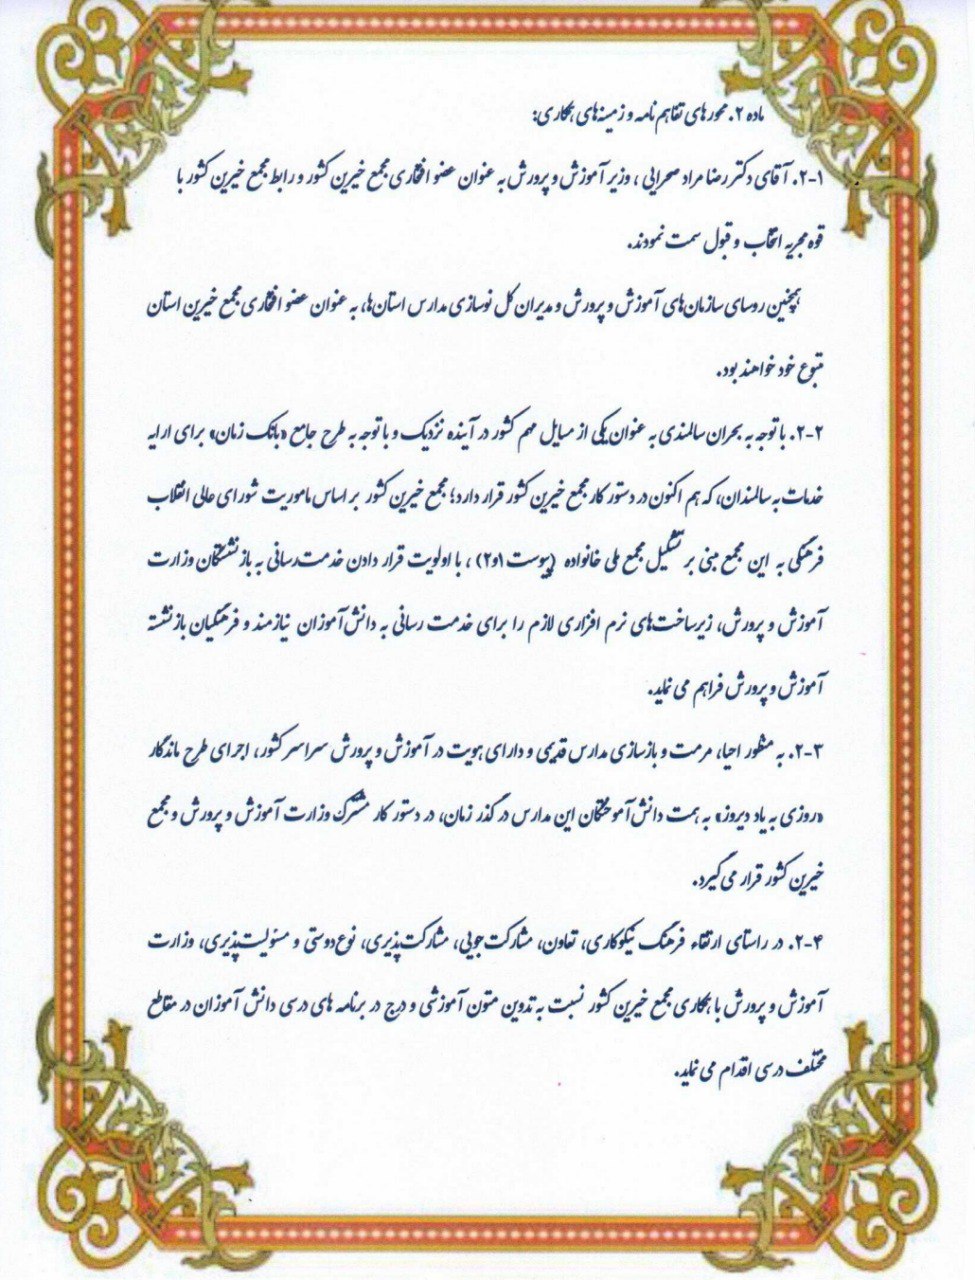 ماده ۲. محورهای تفاهم نامه و زمینه‌های همکاری:
۲-۱. آقای دکتر رضا مراد صحرایی ، وزیر آموزش و پرورش به عنوان عضو افتخاری مجمع خیرین کشور و رابط مجمع خیرین کشور با
قوه مجریه انتخاب و قبول سمت نمودند.
همچنین روسای سازمان‌های آموزش و پرورش و مدیران کل نوسازی مدارس استان‌ها، به عنوان عضو افتخاری مجمع خیرین استان
متبوع خود خواهند بود.
۲-۲. با توجه به بحران سالمندی به عنوان یکی از مسایل مهم کشور در آینده نزدیک و با توجه به طرح جامع «بانک زمان» برای ارایه
خدمات به سالمندان، که هم اکنون در دستور کار مجمع خیرین کشور قرار دارد؛ مجمع خیرین کشور بر اساس ماموریت شورای عالی انقلاب
فرهنگی به این مجمع مبنی بر تشکیل مجمع ملی خانواده (پیوست ۱و۲) ، با اولویت قرار دادن خدمت‌رسانی به بازنشستگان وزارت
آموزش و پرورش، زیرساخت‌های نرم افزاری لازم را برای خدمت رسانی به دانش‌آموزان نیازمند و فرهنگیان بازنشسته
آموزش و پرورش فراهم می نماید.
۲-۳. به منظور احیا، مرمت و بازسازی مدارس قدیمی و دارای هویت در آموزش و پرورش سراسر کشور، اجرای طرح ماندگار
«روزی به یاد دیروز» به همت دانش‌آموختگان این مدارس در گذر زمان، در دستور کار مشترک وزارت آموزش و پرورش و مجمع
خیرین کشور قرار می‌گیرد.
۲-۴. در راستای ارتقاء فرهنگ نیکوکاری، تعاون، مشارکت‌جویی، مشارکت‌پذیری، نوع‌دوستی و مسئولیت‌پذیری، وزارت
آموزش و پرورش با همکاری مجمع خیرین کشور نسبت به تدوین متون آموزشی و درج در برنامه های درسی دانش آموزان در مقاطع
مختلف درسی اقدام می نماید.